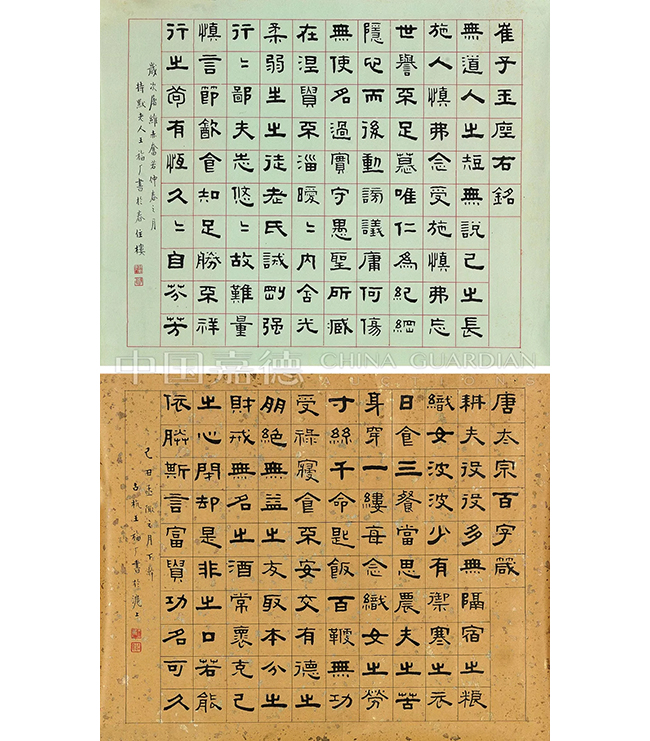 崔子玉座右銘
無道人之短無說己之長
施人慎弗念受施慎弗忘
世譽不足慕唯仁為紀綱
隱心而後動謗議庸何傷
無使名過實守愚聖所臧
在涅貴不淄曖〻內含光
柔弱生之徒老氏誡剛强
行〻鄙夫志悠〻故難量
慎言節飲食知足勝不祥
行之苟有恆久〻自芬芳
歲次屠維赤奮若仲春之月
持默老人王福厂書於春住樓
中国嘉德 CHINA GUARDIAN
唐太宗百字箴
耕夫役役多無隔宿之粮
織女波波少有禦寒之衣
日食三餐當思農夫之苦
身穿一縷每念織女之勞
寸絲千命匙飯百鞭無功
受祿寢食不安交有德之
朋絕無益之友取本分之
財戒無名之酒常懷克己
之心閉却是非之口若能
依朕斯言富貴功名可久
己丑孟陬之月下澣
古杭王福厂書於滬上